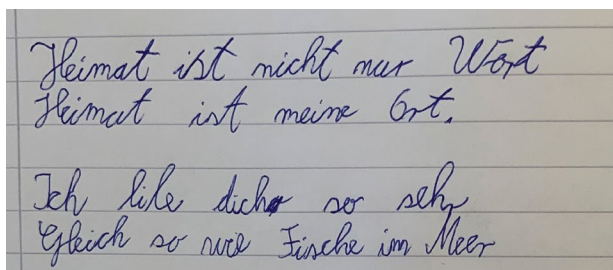 Heimat ist nicht nur Wort
Heimat ist meine Ort.
Ich like dich so sehr
Gleich so wie Fische im Meer